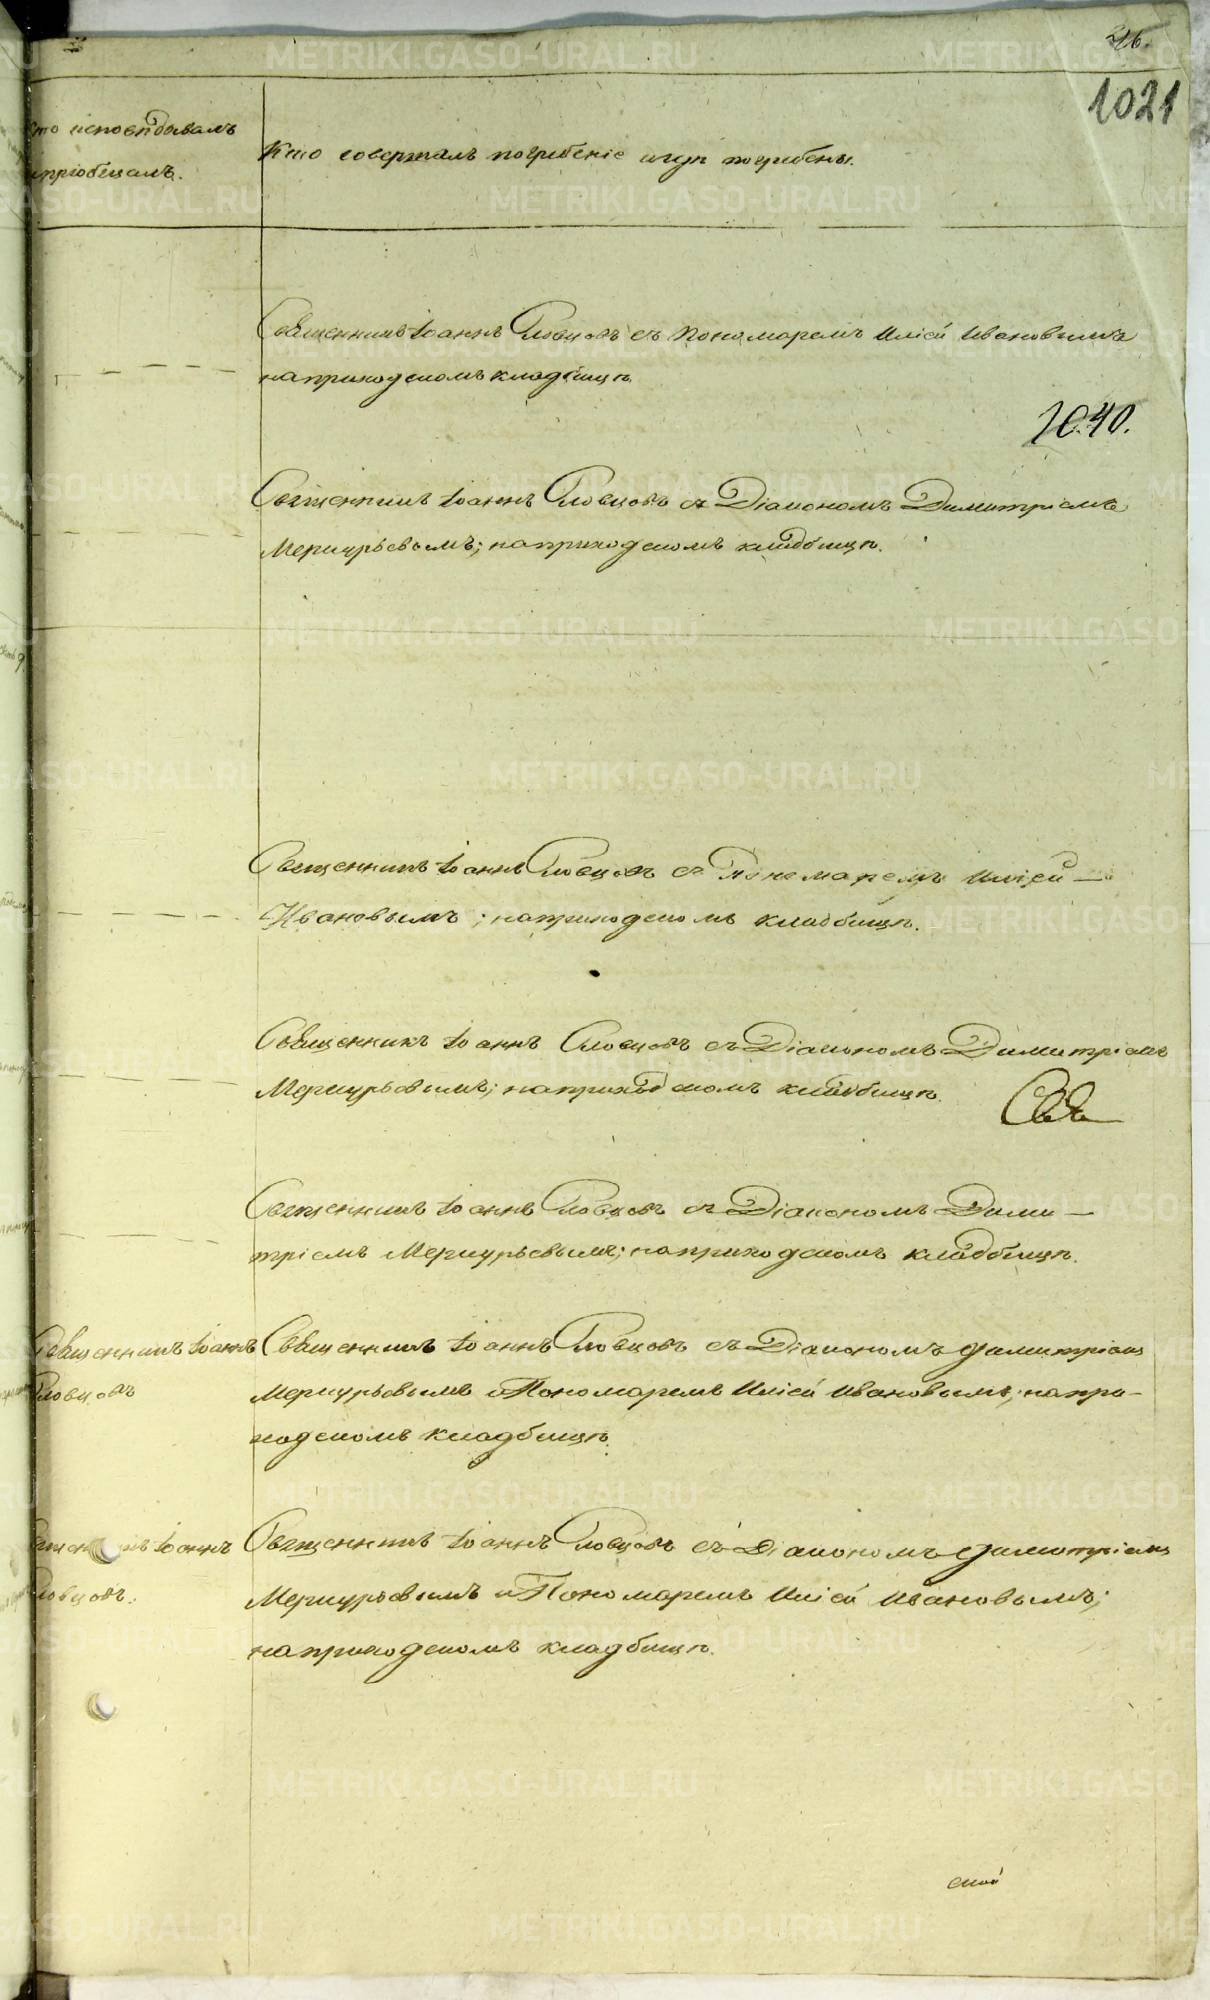 246.
1021
Кто исповѣдывалъ
и пріобщалъ.
Кто совершалъ погребеніе и гдѣ погребены.
Священникъ Іоаннъ Словцовъ съ Пономаремъ Иліей Ивановымъ
на приходскомъ кладбищѣ.
1040.
Священникъ Іоаннъ Словцовъ съ Діакономъ Димитріемъ
Меркурьевымъ; на приходскомъ кладбищѣ.
Священникъ Іоаннъ Словцовъ съ Пономаремъ Иліей
Ивановымъ; на приходскомъ кладбищѣ.
Священникъ Іоаннъ Словцовъ съ Діакономъ Димитріемъ
Меркурьевымъ; на приходскомъ кладбищѣ.
Священникъ Іоаннъ Словцовъ съ Діакономъ Дими-
тріемъ Меркурьевымъ; на приходскомъ кладбищѣ.
Священникъ Іоаннъ
Словцовъ
Священникъ Іоаннъ Словцовъ съ Діакономъ Димитріемъ
Меркурьевымъ и Пономаремъ Иліей Ивановымъ; на при-
ходскомъ кладбищѣ.
Священникъ Іоаннъ
Словцовъ.
Священникъ Іоаннъ Словцовъ съ Діакономъ Димитріемъ
Меркурьевымъ и Пономаремъ Иліей Ивановымъ;
на приходскомъ кладбищѣ.
ской
METRIKI.GASO-URAL.RU